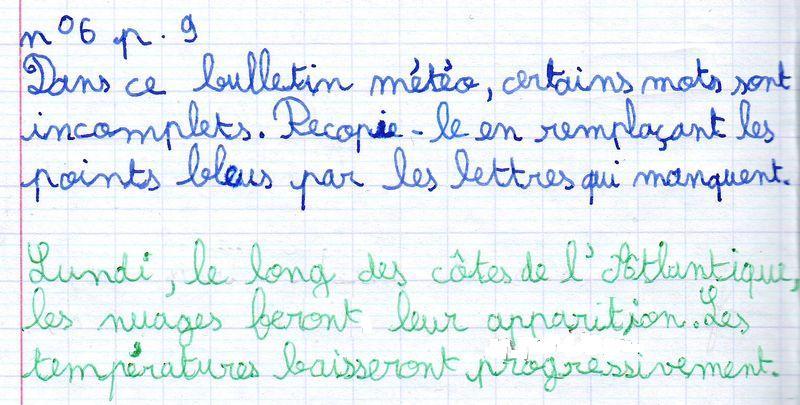 n°6 p. 9
Dans ce bulletin météo, certains mots sont
incomplets. Recopie-le en remplaçant les
points bleus par les lettres qui manquent.
Lundi, le long des côtes de l'Atlantique,
les nuages feront leur apparition. Les
températures baisseront progressivement.